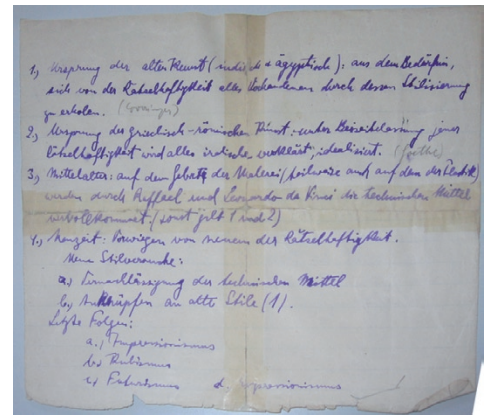 1., Ursprung der alten Kunst (indisch & ägyptisch): aus dem Bedürfnis,
sich von der Rätselhaftigkeit alles Vorhandenen durch dessen Stilisierung
zu erholen.
2., Ursprung der griechisch-römischen Kunst: unter Beiseitelassung jener
Rätselhaftigkeit wird alles irdische verklärt, idealisiert. (Goethe)
3., Mittelalter: auf dem Gebiete der Malerei (teilweise auch auf dem der Plastik)
werden durch Raffael und Leonardo da Vinci die technischen Mittel
vervollkommnet. (sonst gilt 1 und 2)
4., Neuzeit: Vorwiegen von neuem der Rätselhaftigkeit.
Neue Stilversuche:
a., Vernachlässigung der technischen Mittel
b., Anknüpfen an alte Stile (1).
Letzte Folgen:
a., Impressionismus
b., Kubismus
c., Futurismus d., Expressionismus